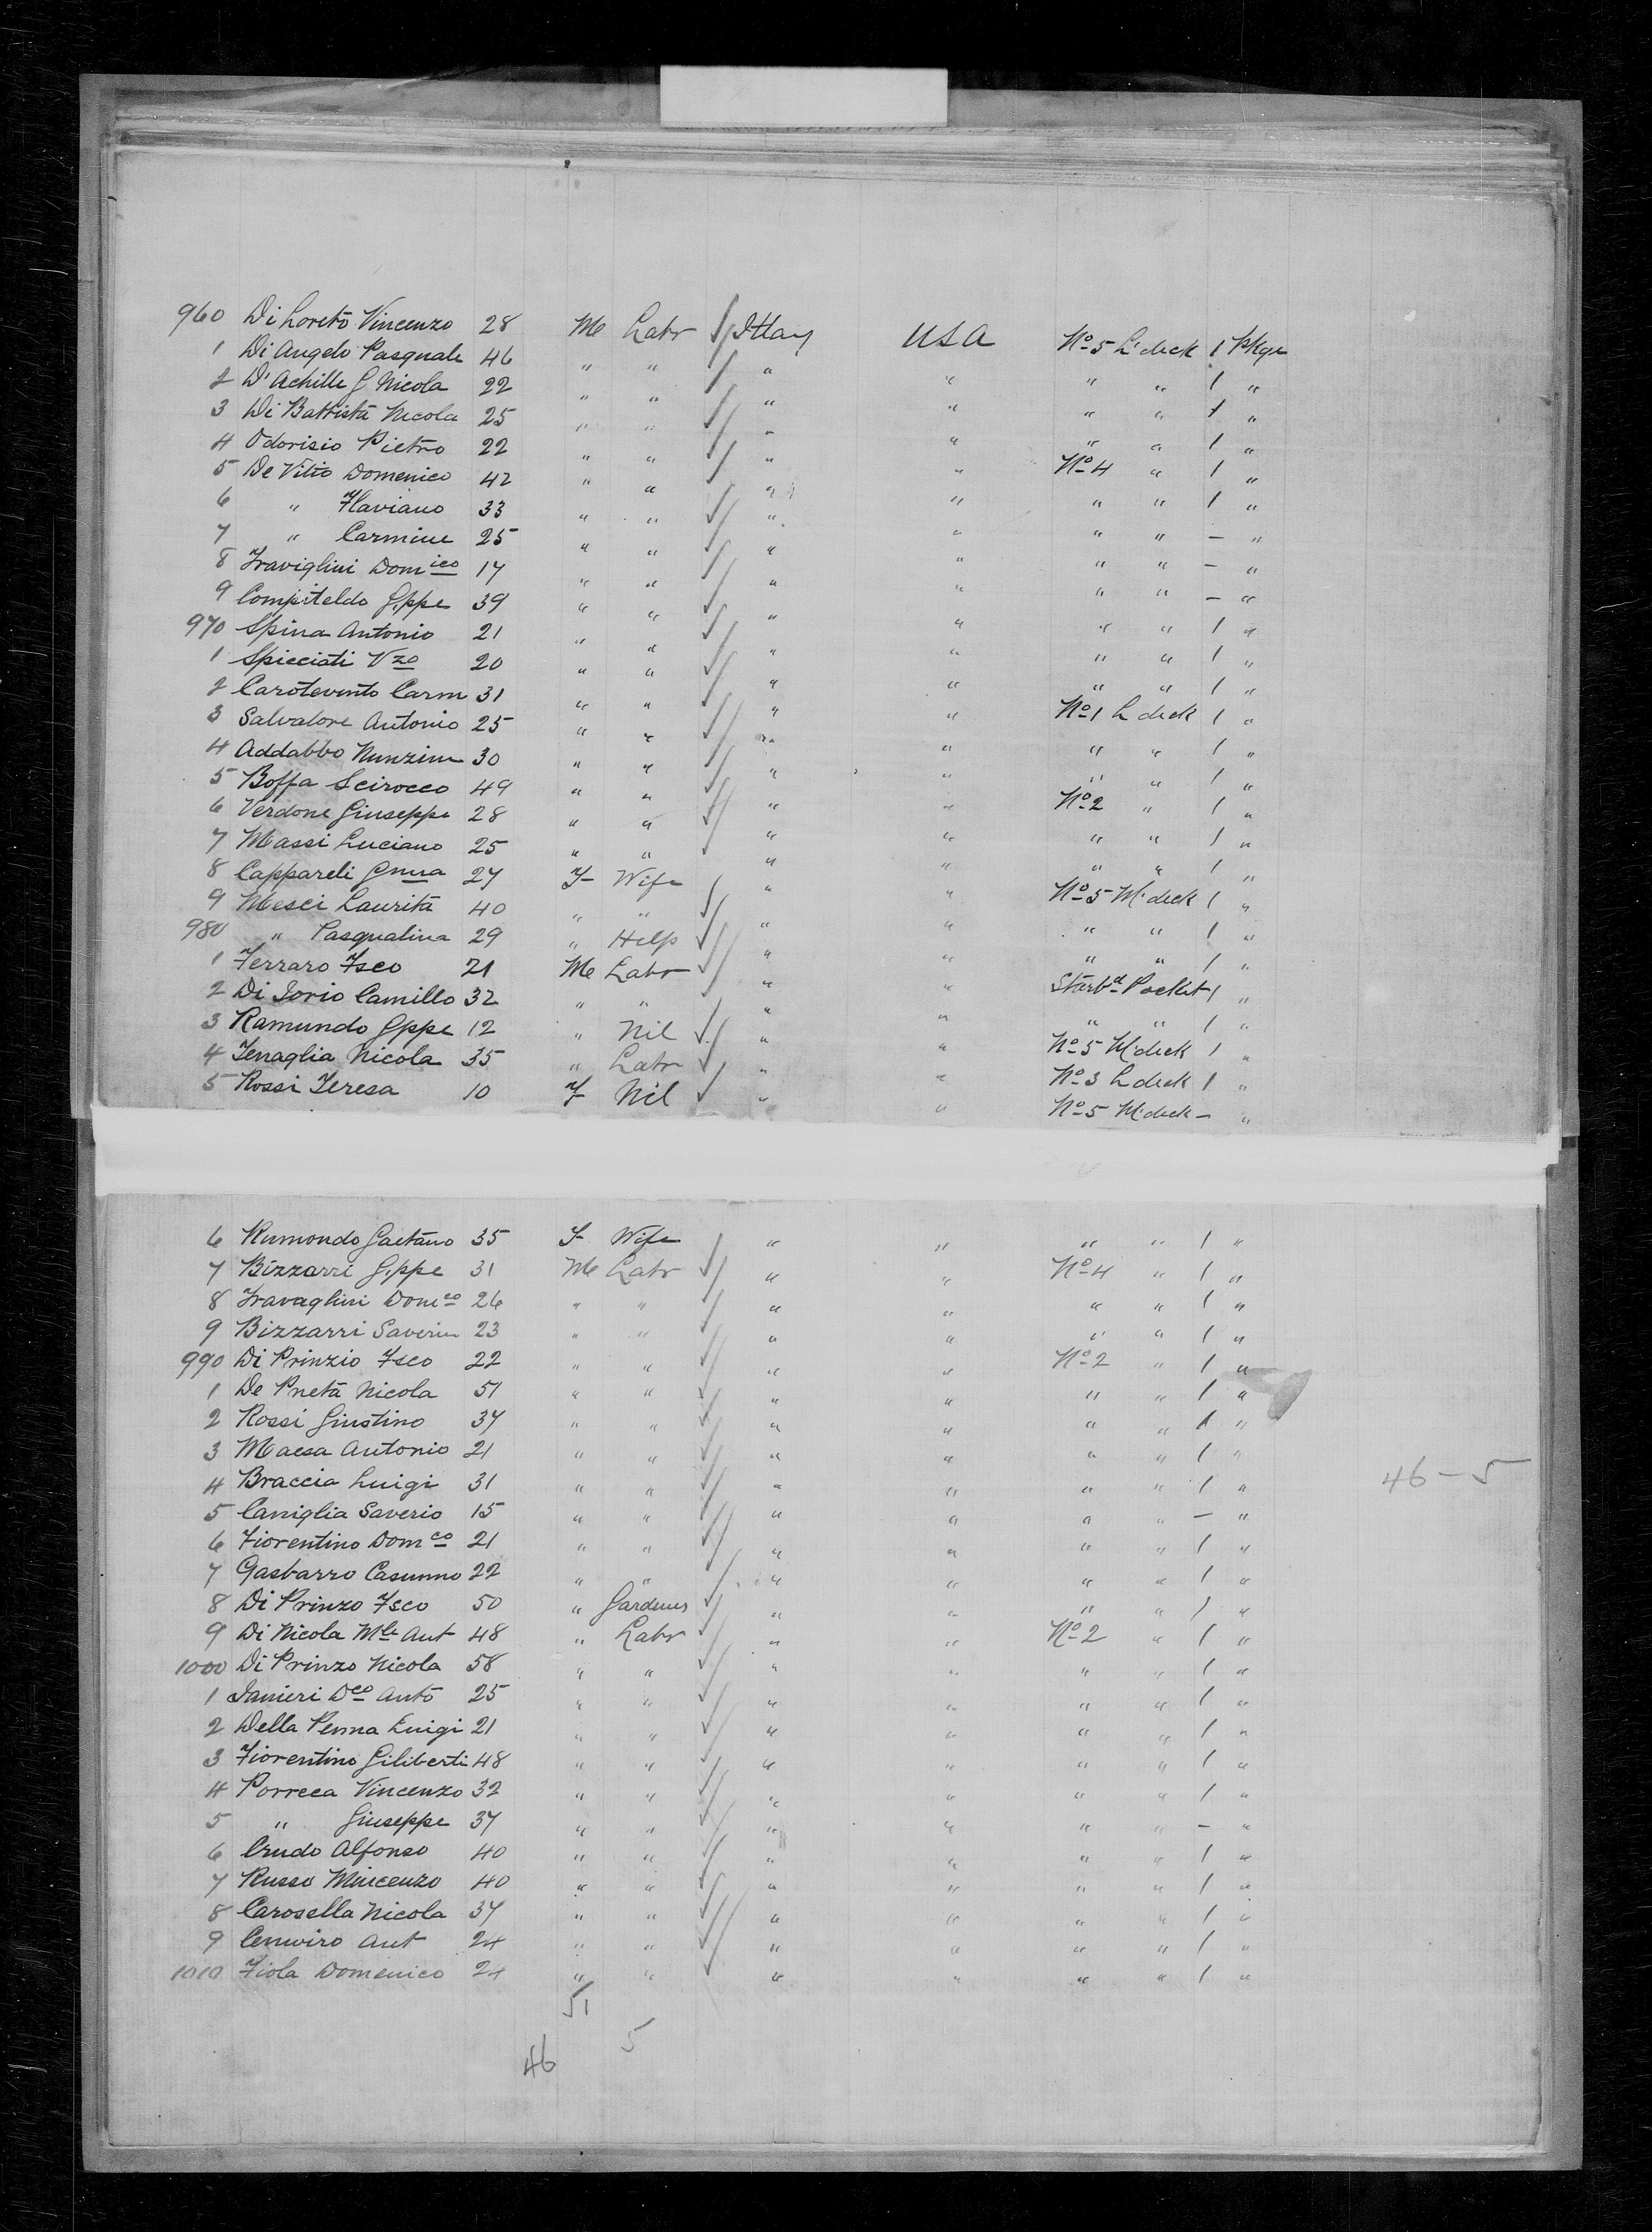 960 Di Loreto Vincenzo 28 M Labr Italy USA No 5 L deck 1 Pkge
1 Di Angelo Pasquale 46 " " " " " " 1 "
2 D'Achille G Nicola 22 " " " " " " 1 "
3 Di Battista Nicola 25 " " " " " " 1 "
4 Odorisio Pietro 22 " " " " No 4 " 1 "
5 De Vitto Domenico 42 " " " " " " 1 "
6 " Flaviano 33 " " " " " " — "
7 " Carmine 25 " " " " " " — "
8 Traviglini Domico 17 " " " " " " — "
9 Compiteldo Gppe 39 " " " " " " 1 "
970 Spina Antonio 21 " " " " " " 1 "
1 Spicciati Vzo 20 " " " " " " 1 "
2 Carotevinto Carm 31 " " " " No 1 L deck 1 "
3 Salvatore Antonio 25 " " " " " " 1 "
4 Addabbo Nunzim 30 " " " " " " 1 "
5 Boffa Scirocco 49 " " " " No 2 " 1 "
6 Verdone Giuseppe 28 " " " " " " 1 "
7 Massi Luciano 25 " " " " " " 1 "
8 Cappareli Gnna 27 F Wife " " No 5 M deck 1 "
9 Mesci Laurita 40 " " " " " " 1 "
980 " Pasqualina 29 " Help " " " " 1 "
1 Ferraro Fsco 21 M Labr " " Starbd Pocket 1 "
2 Di Iorio Camillo 32 " " " " " " 1 "
3 Ramundo Gppe 12 " Nil " " No 5 M deck 1 "
4 Tenaglia Nicola 35 " Labr " " No 3 L deck 1 "
5 Rossi Teresa 10 F Nil " " No 5 M deck — "
6 Rumondo Gaetano 35 F Wife " " " " 1 "
7 Bizzarri Gppe 31 M Labr " " No 4 " 1 "
8 Travaglini Domco 26 " " " " " " 1 "
9 Bizzarri Saverin 23 " " " " " " 1 "
990 Di Prinzio Fsco 22 " " " " No 2 " 1 "
1 De Prieta Nicola 51 " " " " " " 1 "
2 Rossi Giustino 37 " " " " " " 1 "
3 Maesa Antonio 21 " " " " " " 1 "
4 Braccia Luigi 31 " " " " " " 1 " 46-5
5 Caniglia Saverio 15 " " " " " " — "
6 Fiorentino Domco 21 " " " " " " 1 "
7 Gasbarro Casunno 22 " " " " " " 1 "
8 Di Prinzo Fsco 50 " Gardener " " " " 1 "
9 Di Nicola Mle Ant 48 " Labr " " No 2 " 1 "
1000 Di Prinzo Nicola 58 " " " " " " 1 "
1 Ianieri Dco Anto 25 " " " " " " 1 "
2 Della Penna Luigi 21 " " " " " " 1 "
3 Fiorentino Giliberti 48 " " " " " " 1 "
4 Porreca Vincenzo 32 " " " " " " 1 "
5 " Giuseppe 37 " " " " " " — "
6 Crudo Alfonso 40 " " " " " " 1 "
7 Russo Mincenzo 40 " " " " " " 1 "
8 Carosella Nicola 37 " " " " " " 1 "
9 Cenviro Ant 24 " " " " " " 1 "
1010 Fiola Domenico 24 " " " " " " 1 "
51
5
46